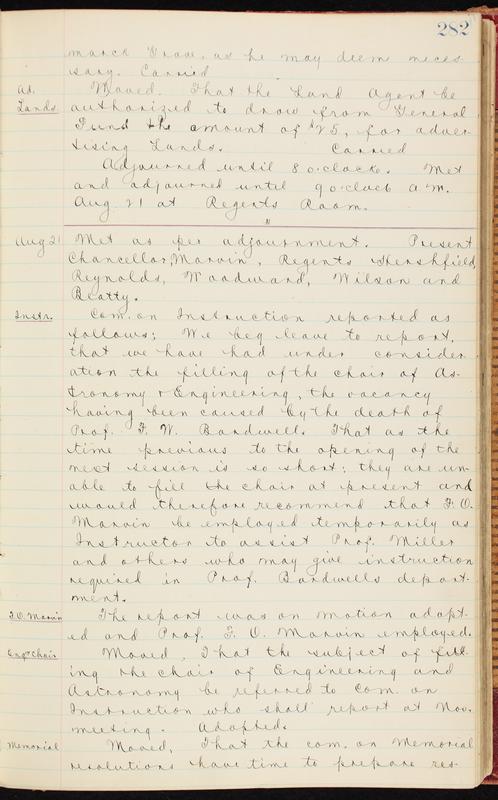 282
march Grove, as he may deem neces
sary. Carried
Ad. Moved. That the Land Agent be
Lands authorized to draw from General
Fund the amount of $25, for adver
tising Lands. Carried
Adjourned until 8 o.clock. Met
and adjourned until 9 o.clock a.m.
Aug 21 at Regents Room.
"
Aug 21 Met as per adjournment. Present
Chancellor, Marvin, Regents Hershfield,
Reynolds, Woodward, Wilson and
Beatty.
Instr. Com. on Instruction reported as
follows; We beg leave to report,
that we have had under consider
ation the filling of the chair of As-
tronomy & Engineering, the vacancy
having been caused by the death of
Prof. F. W. Bardwell. That as the
time previous to the opening of the
next session is so short; they are un-
able to fill the chair at present and
would therefore recommend that F. O.
Marvin be employed temporarily as
Instructor to assist Prof. Miller
and others who may give instruction
required in Prof. Bardwells depart-
ment.
F.O. Marvin The report was on motion adopt-
ed and Prof. F. O. Marvin employed.
Eng. Chair Moved, That the subject of fill
ing the chair of Engineering and
Astronomy be referred to Com. on
Instruction who shall report at Nov.
meeting. Adopted.
Memorial Moved, That the com. on Memorial
resolutions have time to prepare res-